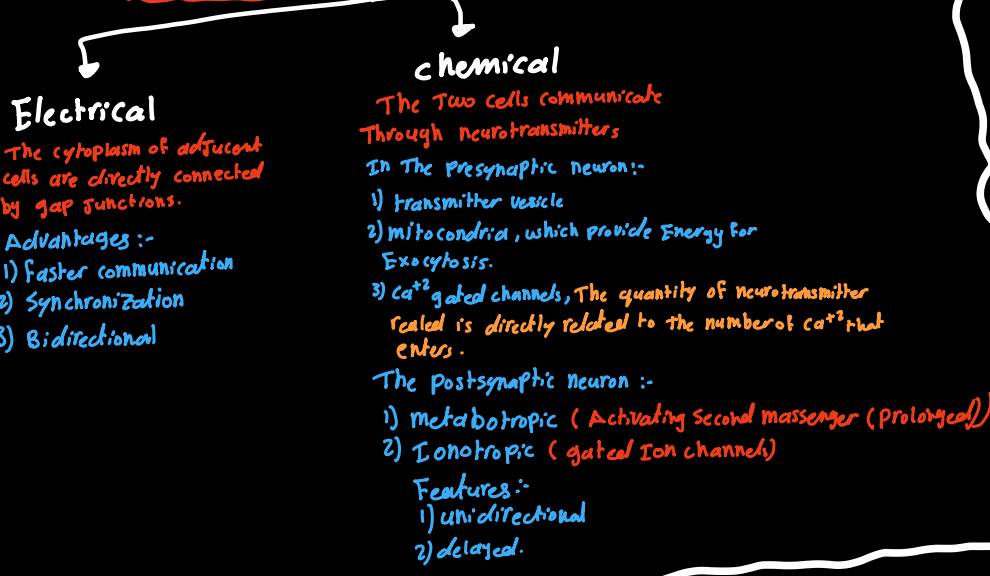 Electrical
The cytoplasm of adjucent
cells are directly connected
by gap junctions.
Advantages :-
1) Faster communication
2) Synchronization
3) Bidirectional
chemical
The Two cells communicate
Through neurotransmitters
In The presynaptic neuron:-
1) transmitter vesicle
2) mitocondria, which provide Energy for
Exocytosis.
3) Ca+2 gated channels, The quantity of neurotransmitter
realed is directly related to the number of Ca+2 that
enters.
The postsynaptic neuron :-
1) metabotropic (Activating Second massenger (prolonged))
2) Ionotropic (gated Ion channels)
Features :-
1) unidirectional
2) delayed.